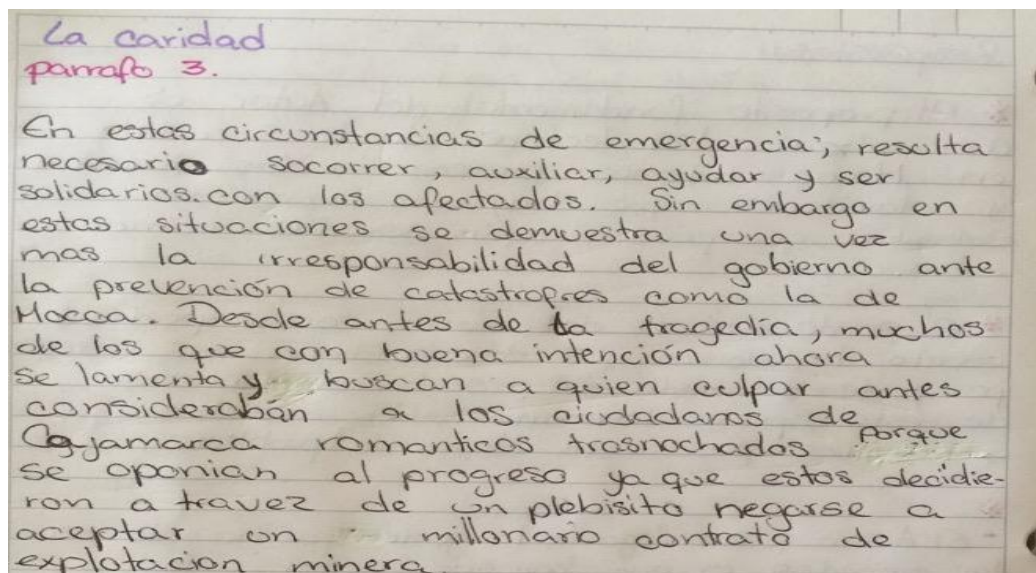 La caridad
parrafo 3.
En estas circunstancias de emergencia; resulta
necesario socorrer, auxiliar, ayudar y ser
solidarios. con los afectados. Sin embargo en
estas situaciones se demuestra una vez
mas la irresponsabilidad del gobierno ante
la prevención de catastrofres como la de
Mocoa. Desde antes de la tragedia, muchos
de los que con buena intención ahora
se lamenta y buscan a quien culpar antes
considerabán a los ciudadanos de
Cajamarca romanticos trasnochados porque
se oponian al progreso ya que estos decidie-
ron a travez de un plebisito negarse a
aceptar un millonario contrato de
explotacion minera